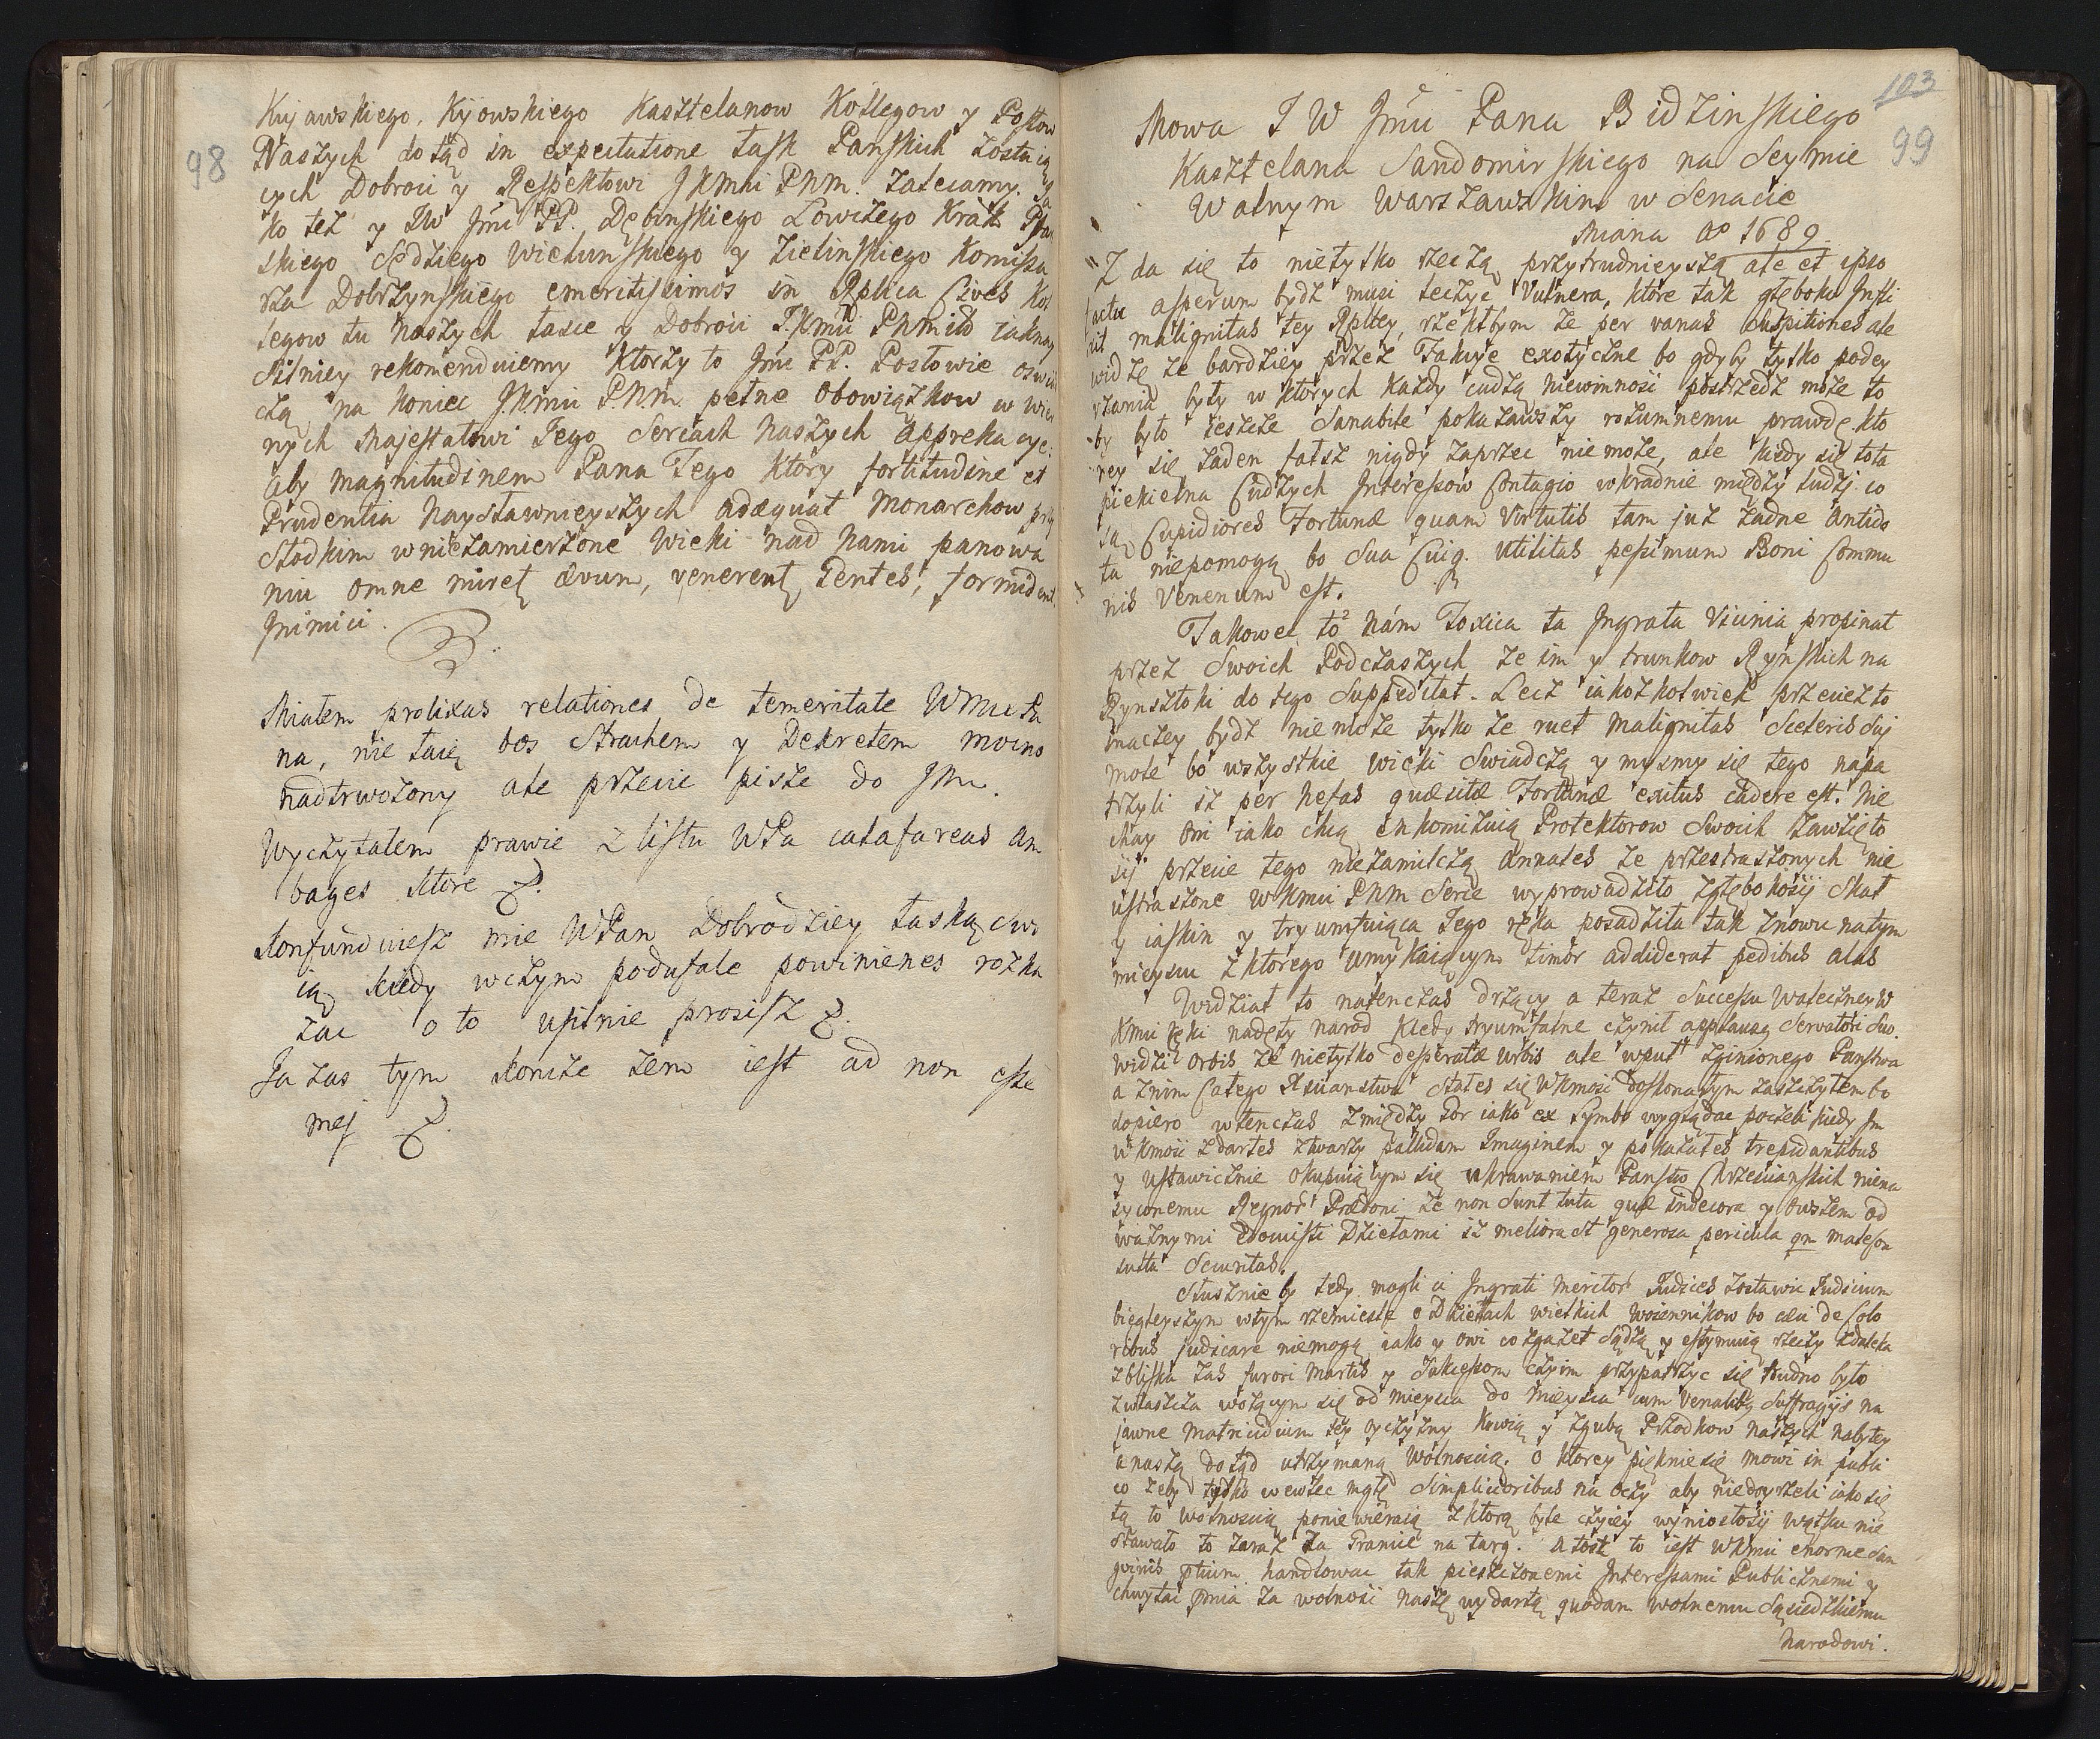 98
Kujawskiego, Kijowskiego Kasztelanow Kollegow y Posłow
Naszych dotąd in expectatione łask Pańskich zostaią
cych Dobroci y Respektowi JKMci PNM. zalecamy. Ja
ko też y JW Jmci PP. Dębinskiego Łowczego Krák.
skiego Sędziego Wielunskiego y Zielinskiego Komissa
rza Dobrzynskiego emeritissimos in Rplica Cives Kol
legow tu naszych łasce y Dobroci JKMci PNMiło iaknay
silniey rekomenduiemy ktorzy to Jmci PP. Posłowie oswiad
czą na koniec JKMci PNM. pełne obowiązkow w wier
nych Majestatowi Jego Sercach naszych apprekacye:
aby magnitudinem Pana Tego ktory fortitudine et
Prudentia naysławnieyszych adæquat Monarchow przy
słodkim w niezamierzone wieki nad nami panowa
niu omne miret ævum, venerent Gentes, formident
Inimici.
Miałem prolixas relationes de temeritate WMcia Pa
na, nie taię bos strachem y Dekretem mocno
nadtrwożony ale przecie pisze do Jm.
Wyczytałem prawie z listu WPa catafareas am
bages ktore &.
Konfunduiesz mie WPan Dobrodziey łaską swo
ią kiedy w czym podufale powinienes rozka
zac o to usilnie prosisz &.
Ja zas tym koncze zem iest ad non esse
mej &.
103
99
Mowa J W Jmci Pana Bidzinskiego
Kasztelana Sandomirskiego na Seymie
Walnym Warszawskim w Senacie
Miana Ao 1689
Zda się to nietylko rzeczą przytrudnieyszą ale et ipso
actu asperum bydz musi leczyc Vulnera, ktore tak głęboko infli
xit malignitas tey Rpltey, rzekłbym że per vanas suspitiones ale
widzę że bardziey przez Fakcye exotyczne bo gdyby tylko podey
rzenia były w ktorych każdy cudzą niewinnosc postrzedz może to
by było ieszcze Sanabile pokazawszy rozumnemu prawdę. kto
rey się żaden fałsz nigdy zaprzec nie może, ale kiedy się tota
piekielna Cudzych Interessow Contagio wkradnie między ludzi co
są Cupidiores Fortunæ quam Virtutis tam już żadne antido
ta niepomogą bo Sua Cuiq. utilitas pessimum Boni Commu
nis Venenum est.
Takowe to nám Toxica ta Ingrata Vicinia propinat
przez Swoich Podczaszych że im y trunkow Rynskich na
Rynsztoki do tego Suppeditat. Lecz iakożkolwiek przeciez to
inaczey bydz niemoże tylko że ruet malignitas Sceleris Sui
mole bo wszystkie wieki swiadczą y mysmy się tego napa
trzyli iż per nefas quæsitæ Fortunæ exitus cadere est. Nie
chay oni iako chcą enkomizuią Protektorow swoich zawzięto
sci przecie tego niezamilczą annales że przestraszonych nie
ustraszone WKMci PNM Serce wyprowadziło z głębokosci Skał
y iaskin y tryumfuiąca Jego ręka posadziła tak znowu na tym
mieyscu z ktorego umykaiącym timor addiderat pedibus alas
Widział to natenczas drzący a teraz Successu waleczney W
KMci ręki nadęty narod kiedy tryumfalne czynił applausa Servatori suo.
widzi orbis że nietylko desperatæ urbis ale wput zginionego Panstwa
a z nim całego Xscianstwa stałes się WKMosc doskonałym zaszczytem bo
dopiero wtenczas z między gor iako ex lymbo wyglądac poczeli kiedy im
WKMosc zdarłes z twarzy pallidam Imaginem y pokazałes trepidantibus
y ustawicznie okupuiącym się ukrawaniem Panstw Chrzescianskich niena
syconemu Regnor Prædoni że non sunt tuta quæ indecora y owszem od
ważnymi edocuisti Dziełami iż meliora st generosa pericula qm malesua
suta Securitas.
Słusznie by tedy mogli ci Ingrati meritor Judices zostawic Judicium
biegleyszym w tym rzemiesle o Dziełach wielkich woiennikow bo cæci de Colo
ribus judicare niemogą iako y owi co z gazet sądzą y estymuią rzeczy zdaleka
z bliska zas furori Martis y Sukcessom czyim przypatrzyc się trudno było
zwłaszcza wożącym się od mieysca do mieysca cum venalibq Suffragijs na
jawne matricidium tey oyczyzny krwią y zgubą Przodkow naszych nabytey
a naszą dotąd utrzymaną Wolnoscią. o ktorey pięknie się mowi in publi
co żeby tylko wewlec mgłę Simplicioribus na oczy aby niedoyrzeli iako się
tą to wolnoscią poniewieraią z ktorą byle czyiey wyniosłosci wątku nie
stawało to zaraz za Granicę na targ. A toż to iest WKMci enorme San
guinis ptium handlowac tak pieszczonemi Interessami Publicznemi y
chwytac pmia za wolnosc naszę wydartą quodam wolnemu sąsiedzkiemu
Narodowi.